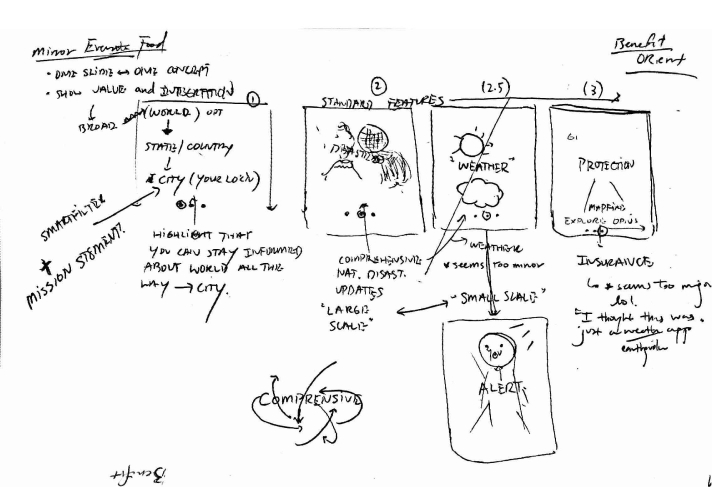 Mirror Events Food
• ONE SLIDE ↔ ONE CONCEPT
• SHOW VALUE and INTEGRATION
BROAD (WORLD) OPT
STATE/COUNTRY
CITY (YOUR LOCN)
SMARTFILTER
MISSION STEMENT.
HIGHLIGHT THAT
YOU CAN STAY INFORMED
ABOUT WORLD ALL THE
WAY → CITY.
1
STANDARD FEATURES
2
DISASTER
COMPREHENSIVE
NAT. DISAST.
UPDATES
"LARGE
SCALE"
(2.5)
"WEATHER"
WEATHER
* seems too minor
"SMALL SCALE"
ALERT
Benefit
ORient
(3)
PROTECTION
MAPPING
EXPLORE
INSURANCE
↳ * seems too major
lol.
"I thought this was
just a weather app
earthquake
COMPRENSIVE
Benefit